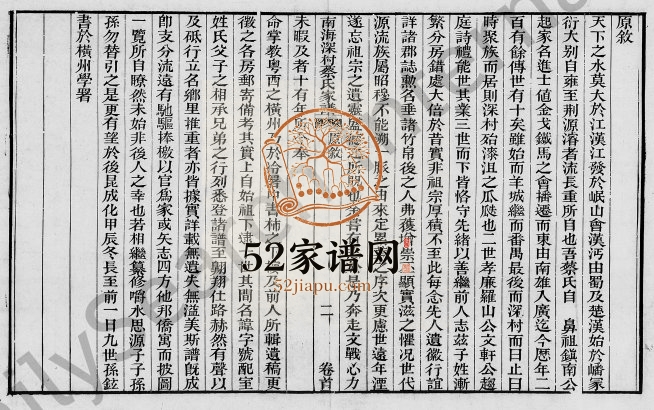 原敘
天下之水莫大於江漢江發於岷山會漢沔由蜀及楚漢始於嶓冢
衍大別自雍至荆源濬者流長重所自也吾蔡氏自 鼻祖鎮南公
起家名進士値金戈鐵馬之會播遷而東由南雄入廣迄今歷年二
百有餘傳世有十矣雖始而羊城繼而番禺最後而深村而曰止曰
時聚族而居則深村始漆沮之瓜瓞也二世孝廉羅山公文軒公趨
庭詩禮能世其業三世而下皆恪守先緒以善繼前人志茲子姓漸
繁分房錯處大倍於昔實非祖宗厚積不至此每念先人遺徽行誼
詳諸郡誌勲名垂諸竹帛後之人弗獲
顯實滋之懼况世代
源流族屬昭穆不能
脈之由來定
序次更慮世遠年湮
遂忘祖宗之遺
是乃奔走文戰心力
南海深村蔡氏家譜 原敘 二 卷首
未暇及者十有年
命掌教粤西之橫州
書
及前人所輯遺稿更
徵之各房郵寄備考其實上自始祖下逮
其間名諱字號配室
姓氏父子之相承兄弟之行列悉登諸譜至
翔仕路赫然有聲以
及砥行立名鄉里推重者亦皆據實詳載無遺失無溢美斯譜旣成
卽支分流遠有馳驅捧檄以官爲家或矢志四方他邦僑寓而披圖
一覽所自瞭然未始非後人之幸也若相繼纂修嚼水思源子子孫
孫勿替引之是更有望於後昆成化甲辰冬長至前一日九世孫鉉
書於橫州學署
52家谱网
52jiapu.com
FamilySearch International